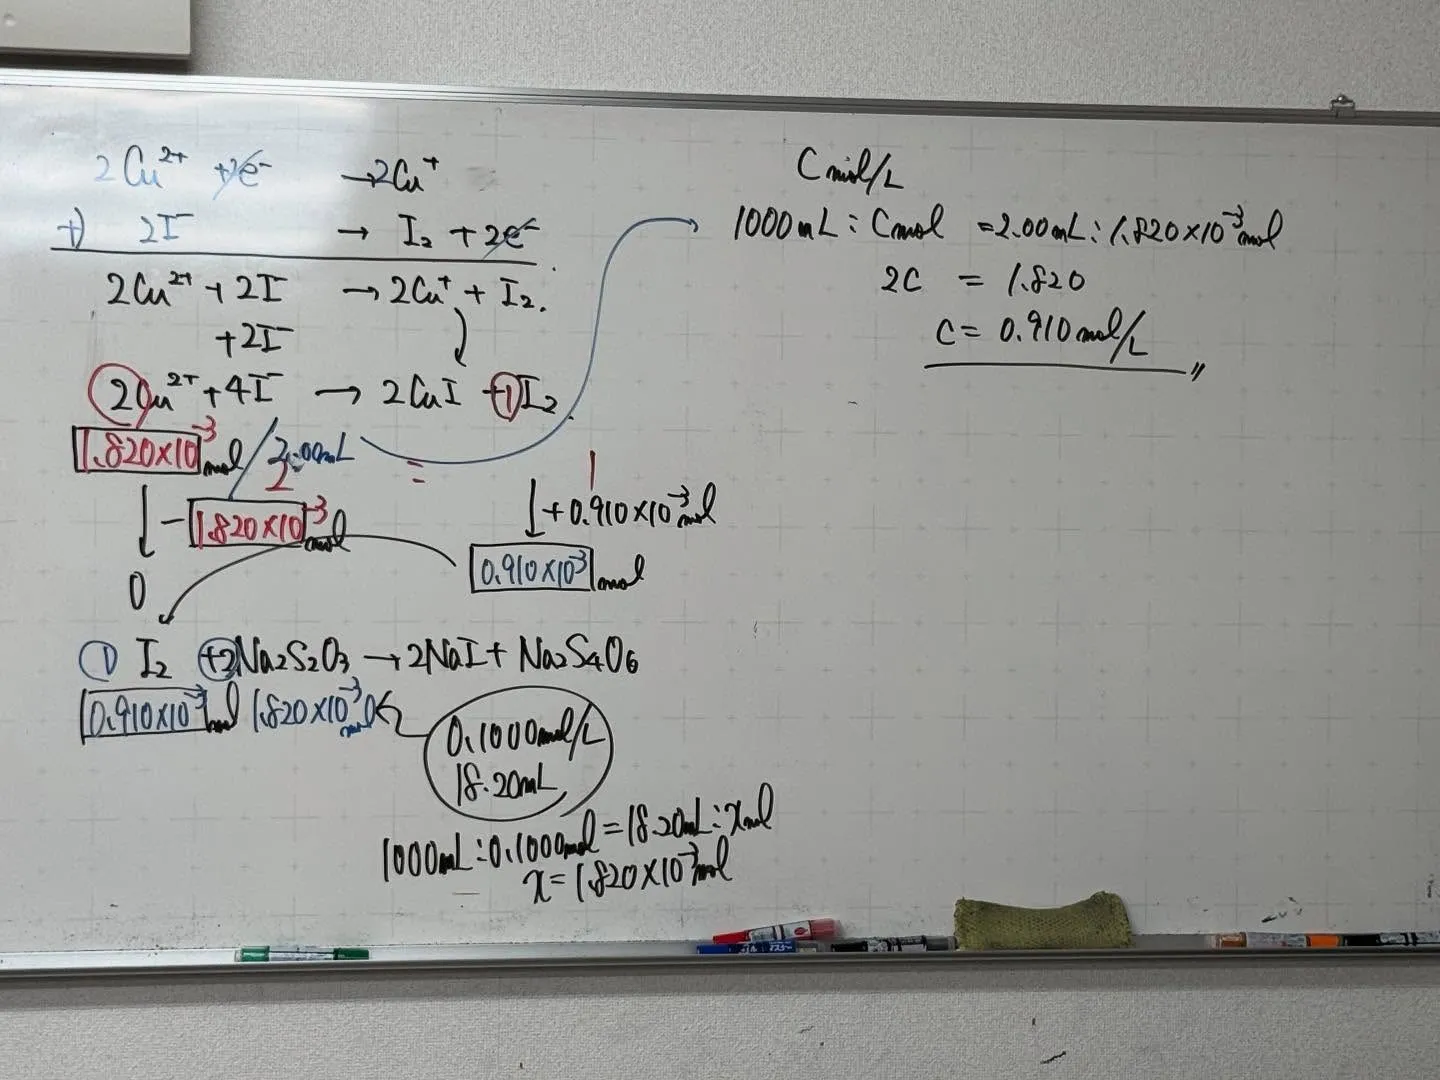 2Cu²⁺ +2e⁻ → 2Cu⁺
+) 2I⁻ → I₂ + 2e⁻
2Cu²⁺ + 2I⁻ → 2Cu⁺ + I₂.
+2I⁻
2Cu²⁺ + 4I⁻ → 2CuI + 1 I₂.
1.820×10⁻³ mol / 2.00mL
2 = 1
↓ − 1.820×10⁻³ mol ↓ +0.910×10⁻³ mol
0 0.910×10⁻³ mol
1 I₂ +2Na₂S₂O₃ → 2NaI + Na₂S₄O₆
0.910×10⁻³ mol 1.820×10⁻³ mol
0.1000mol/L
18.20mL
1000mL : 0.1000mol = 18.20mL : x mol
x = 1.820×10⁻³ mol
C mol/L
1000mL : C mol = 2.00mL : 1.820×10⁻³ mol
2C = 1.820
C = 0.910 mol/L